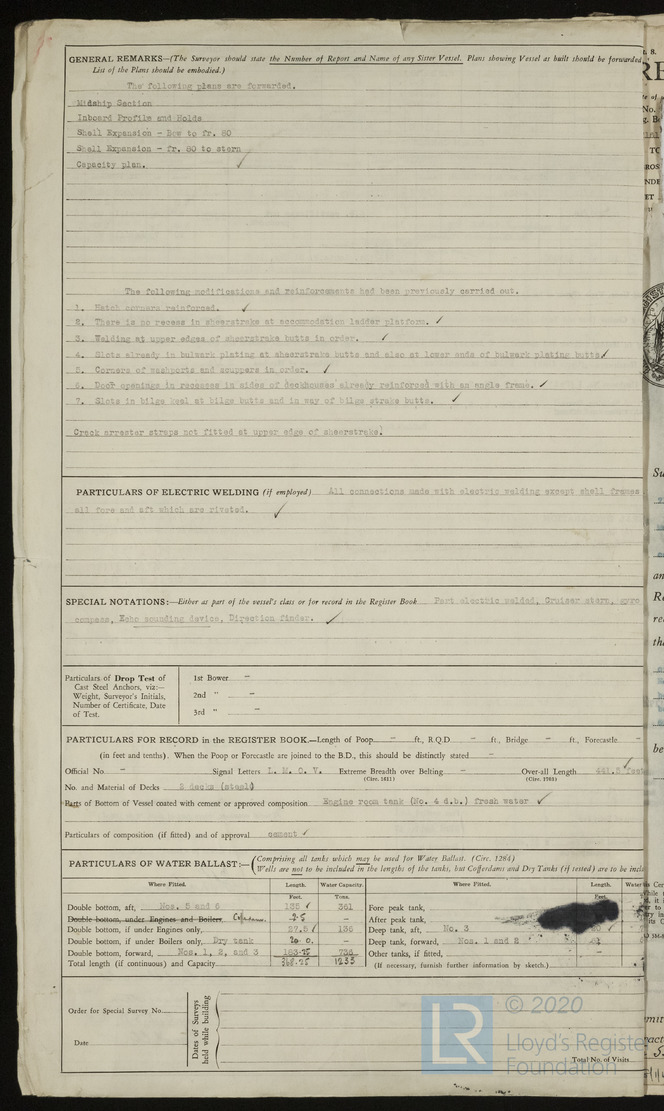 GENERAL REMARKS—(The Surveyor should state the Number of Report and Name of any Sister Vessel. Plans showing Vessel as built should be forwarded.
List of the Plans should be embodied.)
The following plans are forwarded.
Midship Section
Inboard Profile and Holds
Shell Expansion - Bow to fr. 80
Shell Expansion - fr. 80 to stern
Capacity plan. ✓
The following modifications and reinforcements had been previously carried out.
1. Hatch corners reinforced. ✓
2. There is no recess in sheerstrake at accommodation ladder platform. ✓
3. Welding at upper edges of sheerstrake butts in order. ✓
4. Slots already in bulwark plating at sheerstrake butts and also at lower ends of bulwark plating butts ✓
5. Corners of washports and scuppers in order. ✓
6. Door openings in recesses in sides of deckhouses already reinforced with an angle frame. ✓
7. Slots in bilge keel at bilge butts and in way of bilge strake butts. ✓
Crack arrester straps not fitted at upper edge of sheerstrake.
PARTICULARS OF ELECTRIC WELDING (if employed) All connections made with electric welding except shell frames
all fore and aft which are riveted. ✓
SPECIAL NOTATIONS:—Either as part of the vessel's class or for record in the Register Book Part electric welded, Cruiser stern, gyro
compass, Echo sounding device, Direction finder. ✓
Particulars of Drop Test of
Cast Steel Anchors, viz:—
Weight, Surveyor's Initials,
Number of Certificate, Date
of Test.
1st Bower –
2nd " –
3rd " –
PARTICULARS FOR RECORD in the REGISTER BOOK.—Length of Poop – ft., R.Q.D. – ft., Bridge – ft., Forecastle –
(in feet and tenths). When the Poop or Forecastle are joined to the B.D., this should be distinctly stated –
Official No. – Signal Letters L. M. O. V. Extreme Breadth over Belting – Over-all Length 441.5 feet
(Circ. 1611) (Circ. 1703)
No. and Material of Decks 2 decks (steel)
Parts of Bottom of Vessel coated with cement or approved composition Engine room tank (No. 4 d.b.) fresh water ✓
Particulars of composition (if fitted) and of approval cement ✓
PARTICULARS OF WATER BALLAST:— (Comprising all tanks which may be used for Water Ballast. (Circ. 1284)
Wells are not to be included in the lengths of the tanks, but Cofferdams and Dry Tanks (if tested) are to be incl
Where Fitted. Length. Water Capacity. Where Fitted. Length. Water
Feet. Tons. Feet.
Double bottom, aft, Nos. 5 and 6 135 ✓ 361 Fore peak tank,
Double bottom, under Engines and Boilers, 2.5 – After peak tank,
Double bottom, if under Engines only, 27.5 ✓ 136 Deep tank, aft, No. 3
Double bottom, if under Boilers only, Dry tank 20 0. – Deep tank, forward, Nos. 1 and 2
Double bottom, forward, Nos. 1, 2, and 3 183.25 736 Other tanks, if fitted,
Total length (if continuous) and Capacity 368.25 1233 (If necessary, furnish further information by sketch.)
Order for Special Survey No.
Date
Dates of Surveys
held while building
Total No. of Visits
LR
© 2020
Lloyd's Registe
Foundation